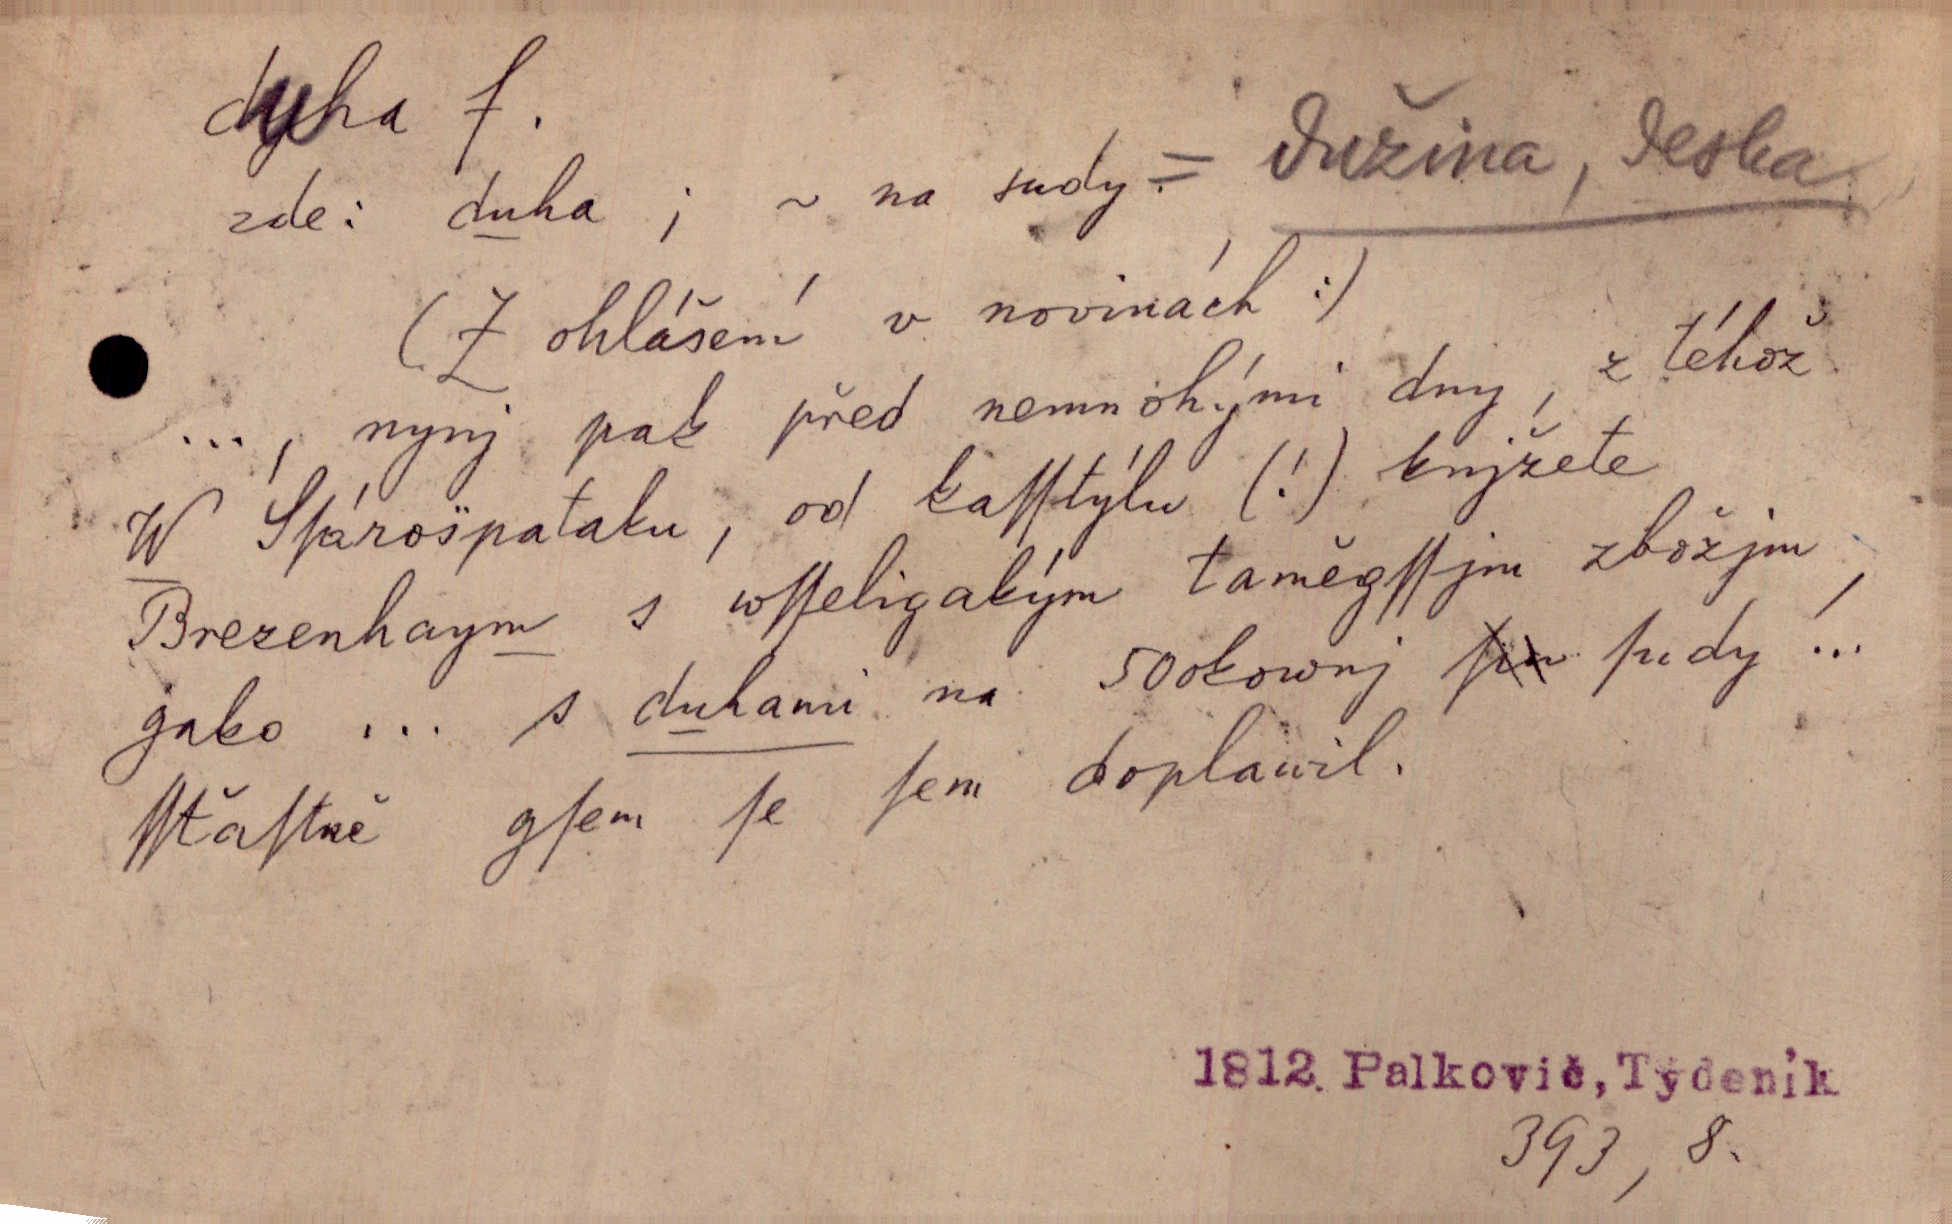 dyha f.
zde: duha ; ~ na sudy = dužina, deska
(Z ohlášení v novinách :)
..., nynj pak před nemnohými dny, z téhož
W Ssárošpataku, od kaſſtýlu (!) knjžete
Brezenhaym s wſſeligakým taměgſſjm zbožjm,
gako ... s duhami na 50okownj ſudy ...
ſſťaſtně gſem ſe ſem doplawil.
1812. Palkovič, Týdeník
393, 8.